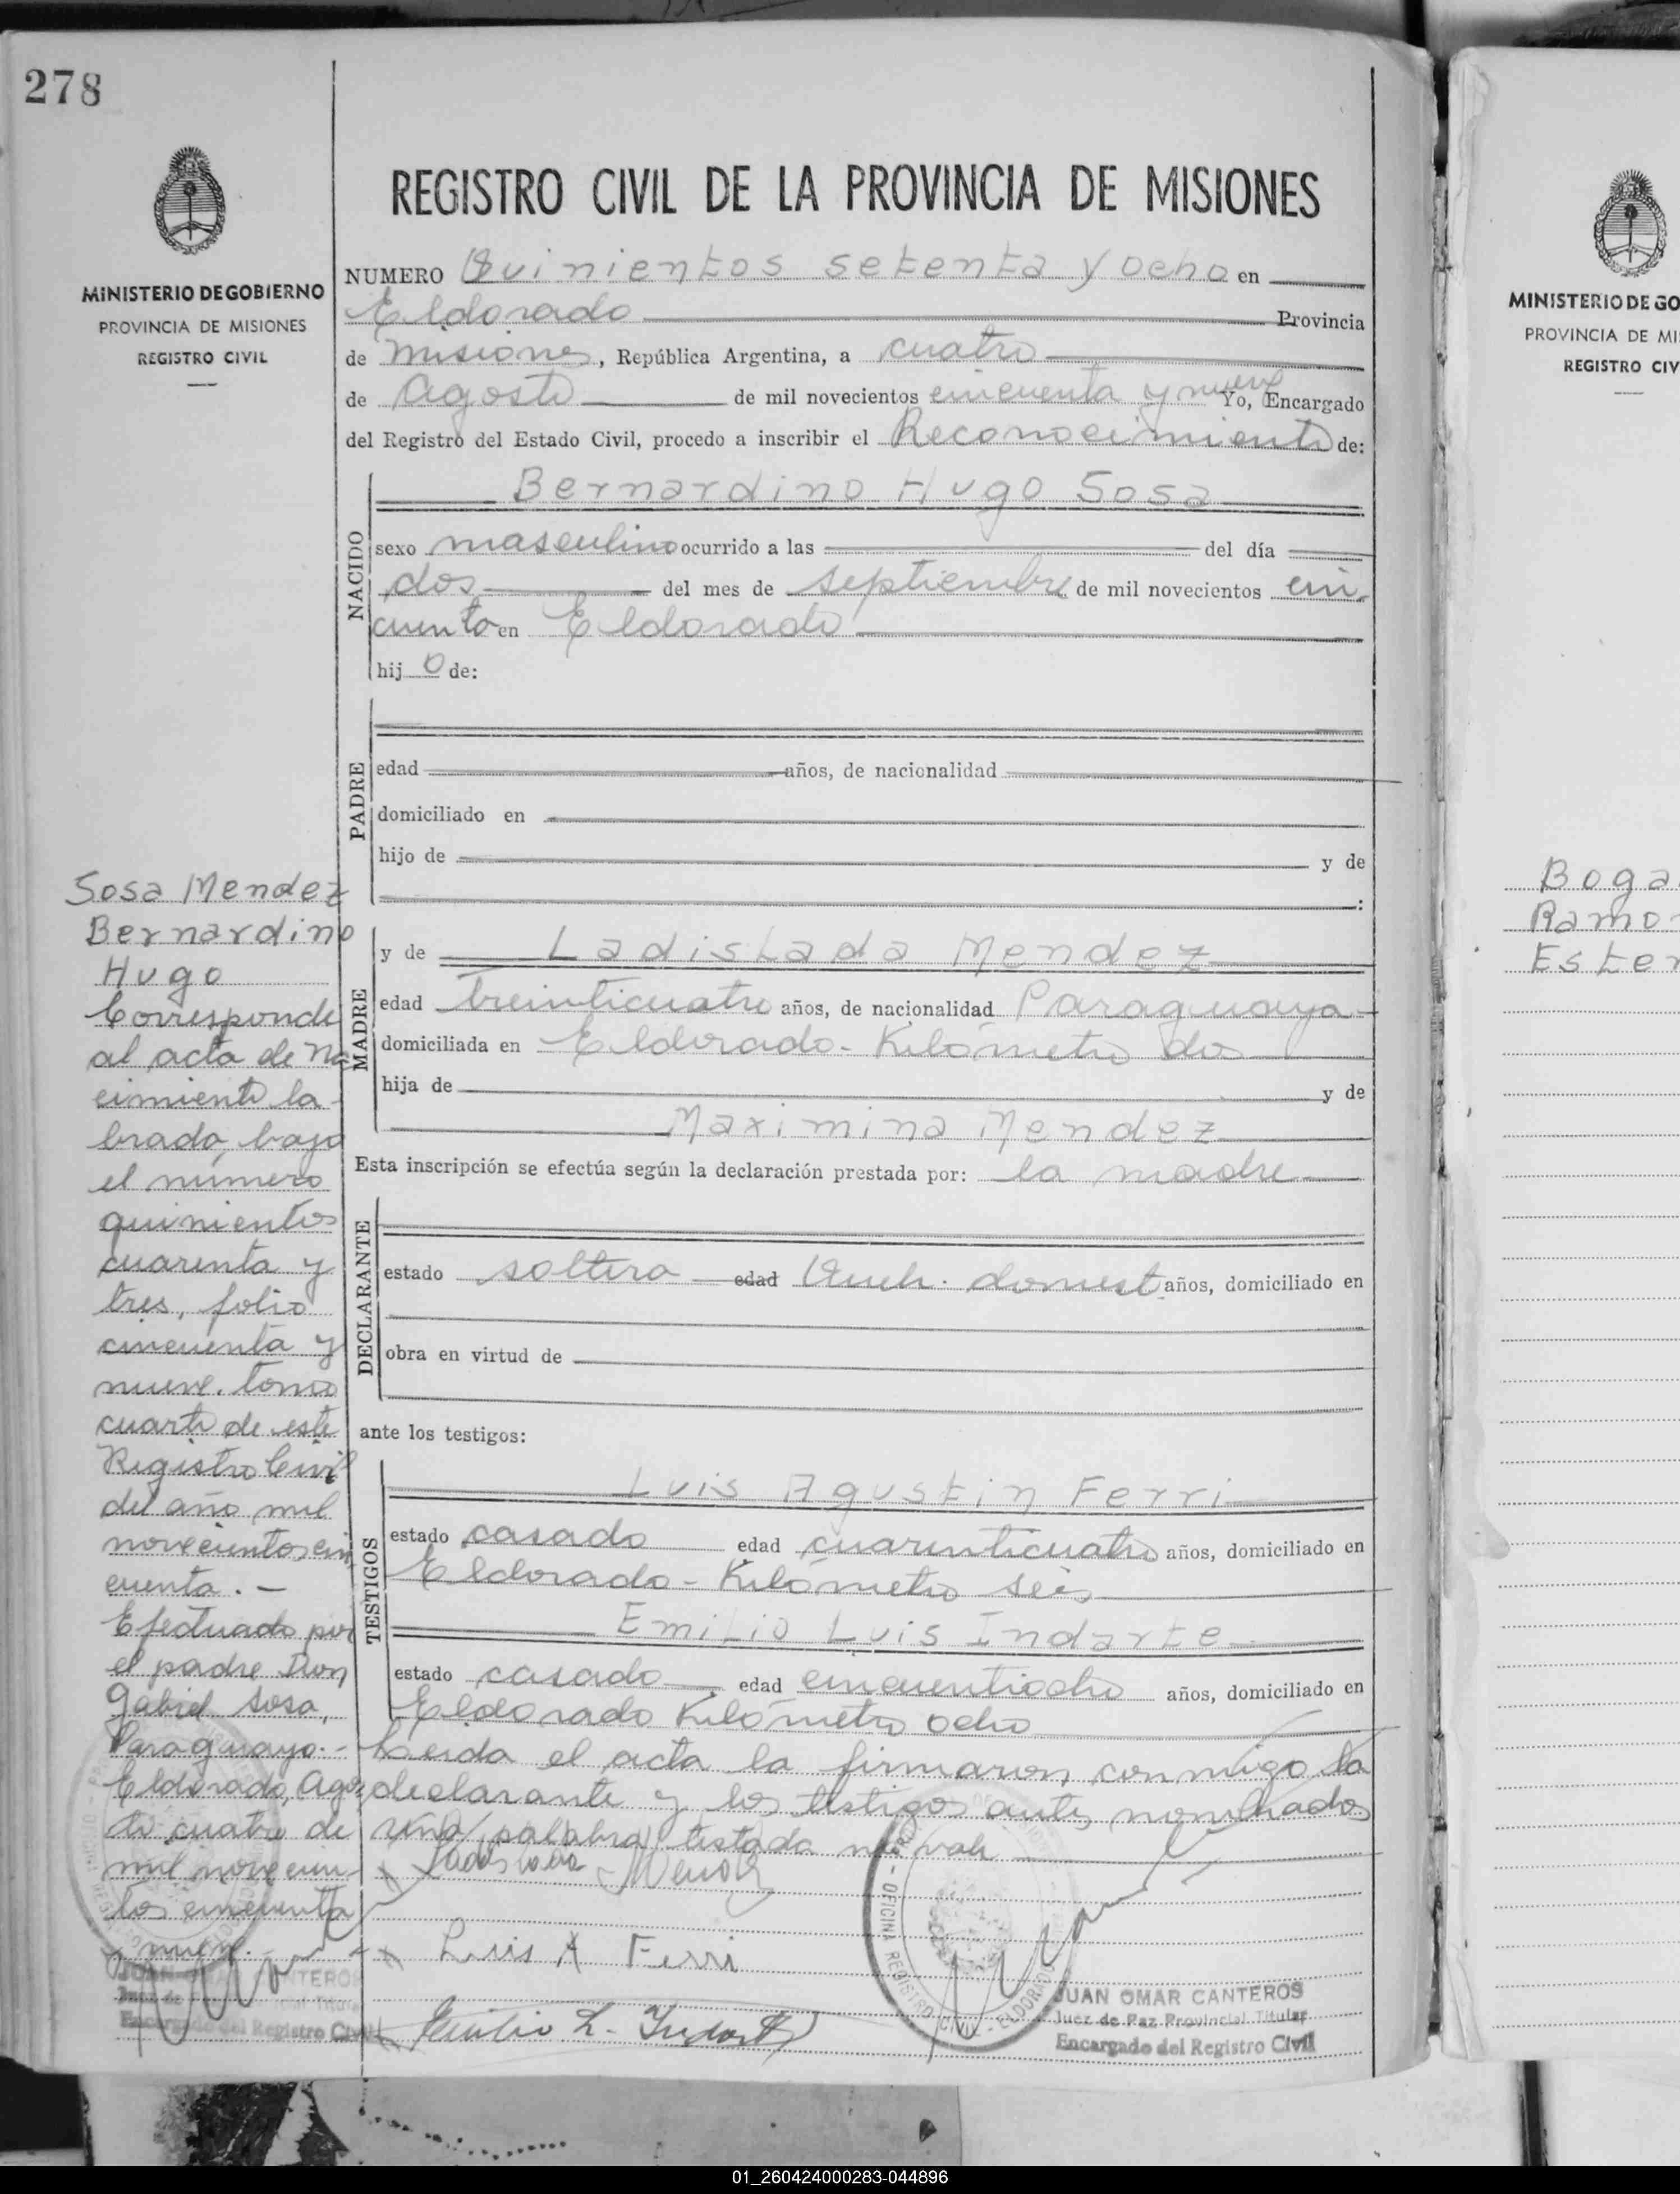 278
REGISTRO CIVIL DE LA PROVINCIA DE MISIONES
MINISTERIO DE GOBIERNO
PROVINCIA DE MISIONES
REGISTRO CIVIL
NUMERO Quinientos setenta y ocho en
Eldorado Provincia
de Misiones, República Argentina, a cuatro
de Agosto de mil novecientos cincuenta y nueve Yo, Encargado
del Registro del Estado Civil, procedo a inscribir el Reconocimiento de:
NACIDO
Bernardino Hugo Sosa
sexo masculino ocurrido a las del día
dos del mes de septiembre de mil novecientos cin-
cuenta en Eldorado
hij o de:
PADRE
edad años, de nacionalidad
domiciliado en
hijo de y de
:
MADRE
y de Ladislada Mendez
edad treinticuatro años, de nacionalidad Paraguaya
domiciliada en Eldorado - Kilómetro dos
hija de y de
Maximina Mendez
Esta inscripción se efectúa según la declaración prestada por: la madre
DECLARANTE
estado soltera edad Queh. domest. años, domiciliado en
obra en virtud de
ante los testigos:
TESTIGOS
Luis Agustin Ferri
estado casado edad cuarenticuatro años, domiciliado en
Eldorado - Kilómetro seis
Emilio Luis Indarte
estado casado edad cincuentiocho años, domiciliado en
Eldorado Kilómetro ocho
Leida el acta la firmaron conmigo la
declarante y los testigos antes nombrados
una palabra testada no vale
Ladislada Mendez
Luis A Ferri
Emilio L. Indarte
OFICINA REGISTRO CIVIL - ELDORADO
JUAN OMAR CANTEROS
Juez de Paz Provincial Titular
Encargado del Registro Civil
Sosa Mendez
Bernardino
Hugo
Corresponde
al acta de Na
cimiento la-
brada bajo
el número
quinientos
cuarenta y
tres, folio
cincuenta y
nueve. tomo
cuarto de este
Registro Civil
del año mil
novecientos cin
cuenta. -
Efectuado por
el padre Don
Gabriel Sosa,
Paraguayo. -
Eldorado, Agos
to cuatro de
mil novecien-
tos cincuenta
y nueve. -
JUAN OMAR CANTEROS
Juez de Titular
Encargado del Registro Civil
MINISTERIO DE GO
PROVINCIA DE MI
REGISTRO CIV
Boga
Ramo
Ester
01_260424000283-044896